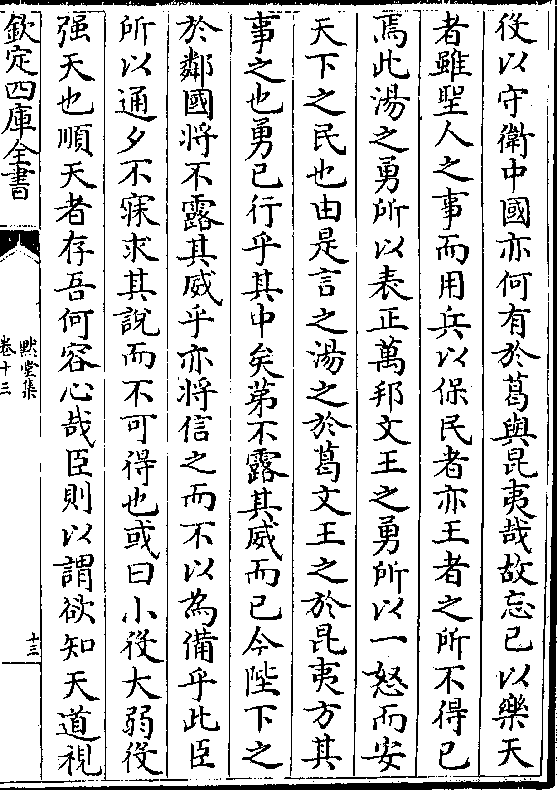 役以守衛中國亦何有於葛與昆夷哉故忘已以樂天
者雖聖人之事而用兵以保民者亦王者之所不得已
焉此湯之勇所以表正萬邦文王之勇所以一怒而安
天下之民也由是言之湯之於葛文王之於昆夷方其
事之也勇已行乎其中矣第不露其威而已今陛下之
於鄰國将不露其威乎亦将信之而不以為備乎此臣
所以通夕不寐求其說而不可得也或曰小役大弱役
强天也順天者存吾何容心哉臣則以謂欲知天道視
欽定四庫全書
默堂集
卷十三
十三